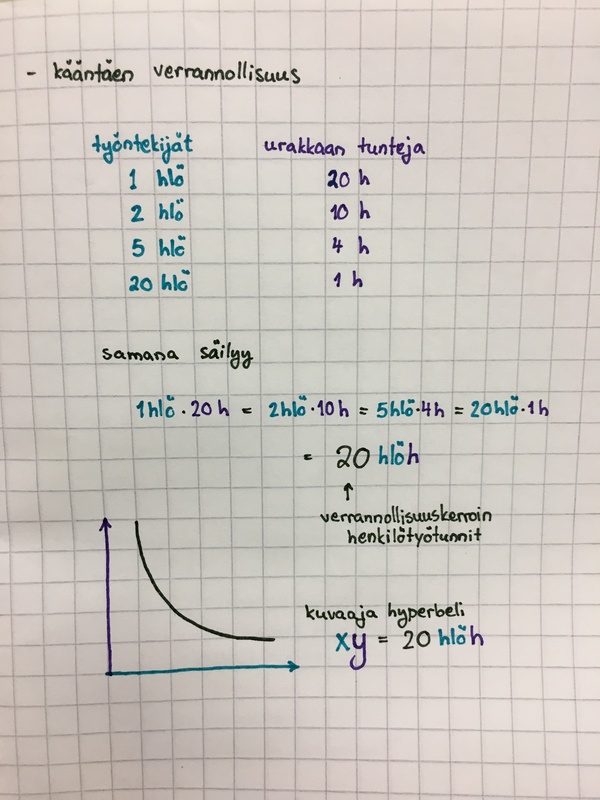 - kääntäen verrannollisuus
työntekijät urakkaan tunteja
1 hlö 20 h
2 hlö 10 h
5 hlö 4 h
20 hlö 1 h
samana säilyy
1hlö · 20 h = 2hlö · 10 h = 5hlö · 4h = 20hlö · 1h
= 20 hlöh
↑
verrannollisuuskerroin
henkilötyötunnit
kuvaaja hyperbeli
xy = 20 hlöh